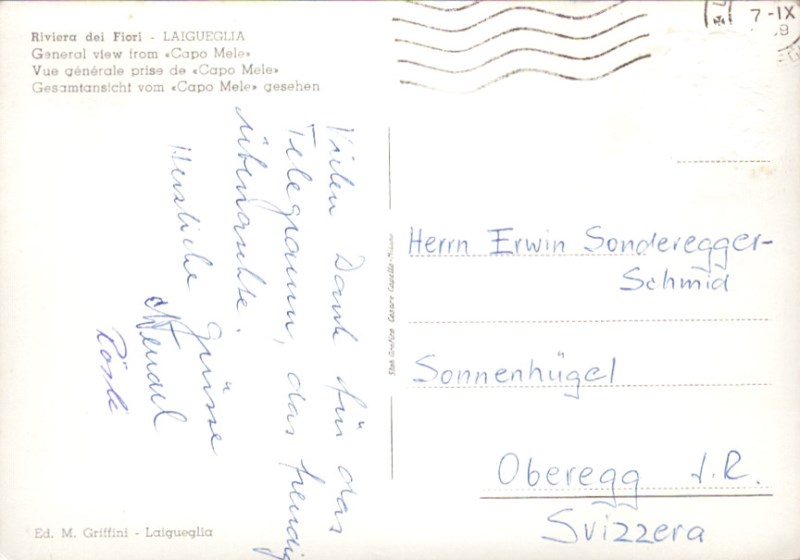 Riviera dei Fiori - LAIGUEGLIA
General view from «Capo Mele»
Vue générale prise de «Capo Mele»
Gesamtansicht vom «Capo Mele» gesehen
7-IX
Vielen Dank für das
Telegramm, das freudig
überraschte.
Herzliche Grüsse
Rösli
Herrn Erwin Sonderegger-
Schmid
Sonnenhügel
Oberegg I.R.
Svizzera
Ed. M. Griffini - Laigueglia